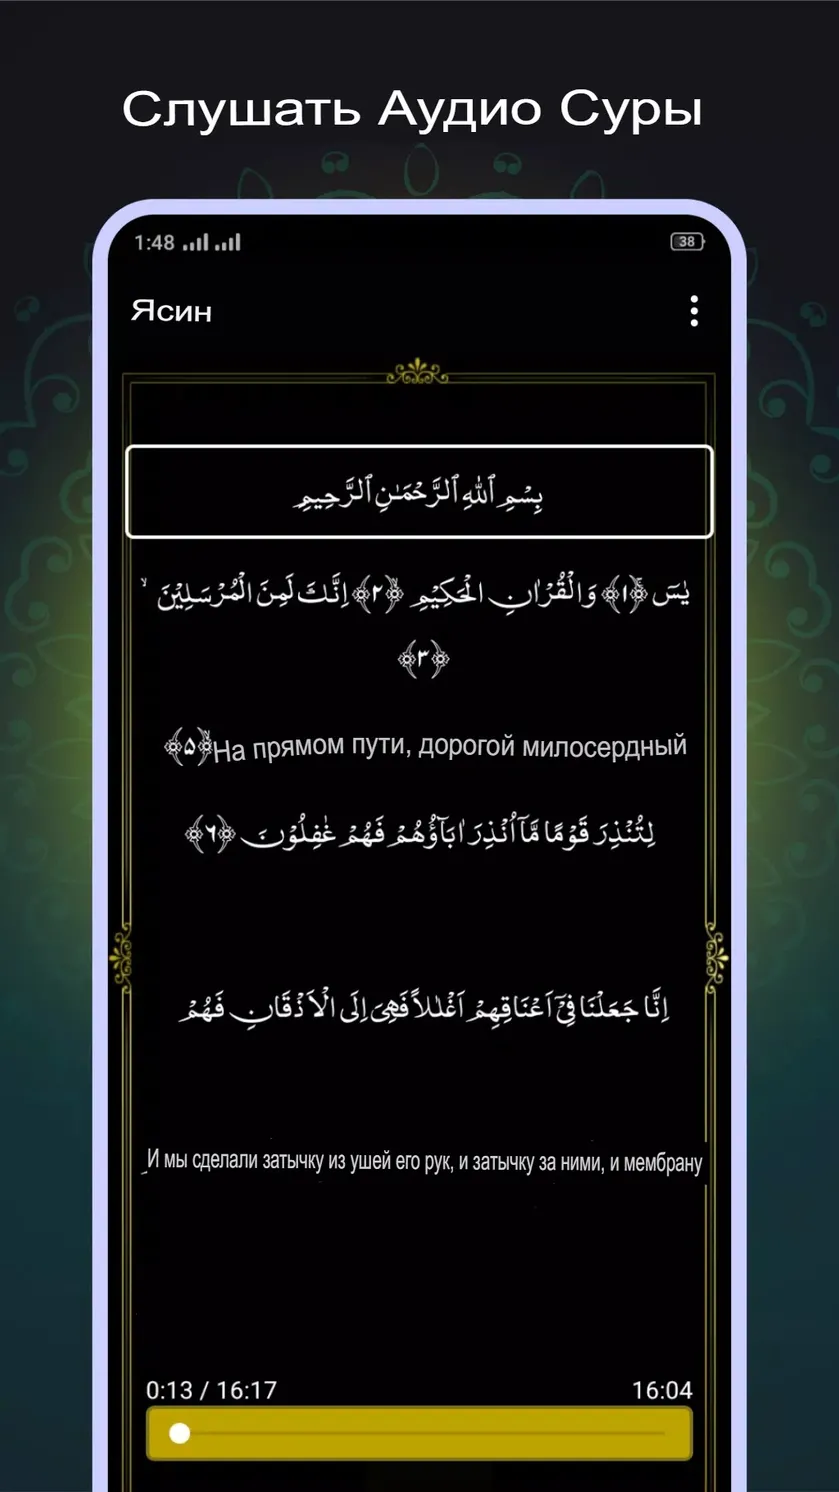 Слушать Аудио Суры
1:48
38
Ясин
بِسْمِ ٱللّٰهِ ٱلرَّحْمَـٰنِ ٱلرَّحِيمِ
يٰسٓ ﴿۱﴾ وَالْقُرْاٰنِ الْحَكِيْمِ ﴿۲﴾ اِنَّكَ لَمِنَ الْمُرْسَلِيْنَ ۙ
﴿۳﴾
﴿۵﴾На прямом пути, дорогой милосердный
لِتُنْذِرَ قَوْمًا مَّاۤ اُنْذِرَ اٰبَآؤُهُمْ فَهُمْ غٰفِلُوْنَ ﴿۶﴾
اِنَّا جَعَلْنَا فِىْۤ اَعْنَاقِهِمْ اَغْلٰلاً فَهِىَ اِلَى الْاَذْقَانِ فَهُمْ
И мы сделали затычку из ушей его рук, и затычку за ними, и мембрану
0:13 / 16:17
16:04